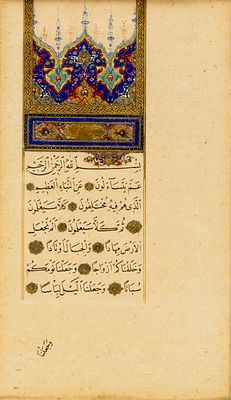 بِسْمِ اللَّهِ الرَّحْمَٰنِ الرَّحِيمِ
عَمَّ يَتَسَاءَلُونَ عَنِ النَّبَإِ الْعَظِيمِ
الَّذِي هُمْ فِيهِ مُخْتَلِفُونَ كَلَّا سَيَعْلَمُونَ
ثُمَّ كَلَّا سَيَعْلَمُونَ أَلَمْ نَجْعَلِ
الْأَرْضَ مِهَادًا وَالْجِبَالَ أَوْتَادًا
وَخَلَقْنَاكُمْ أَزْوَاجًا وَجَعَلْنَا نَوْمَكُمْ
سُبَاتًا وَجَعَلْنَا اللَّيْلَ لِبَاسًا
وَجَعَلْنَا